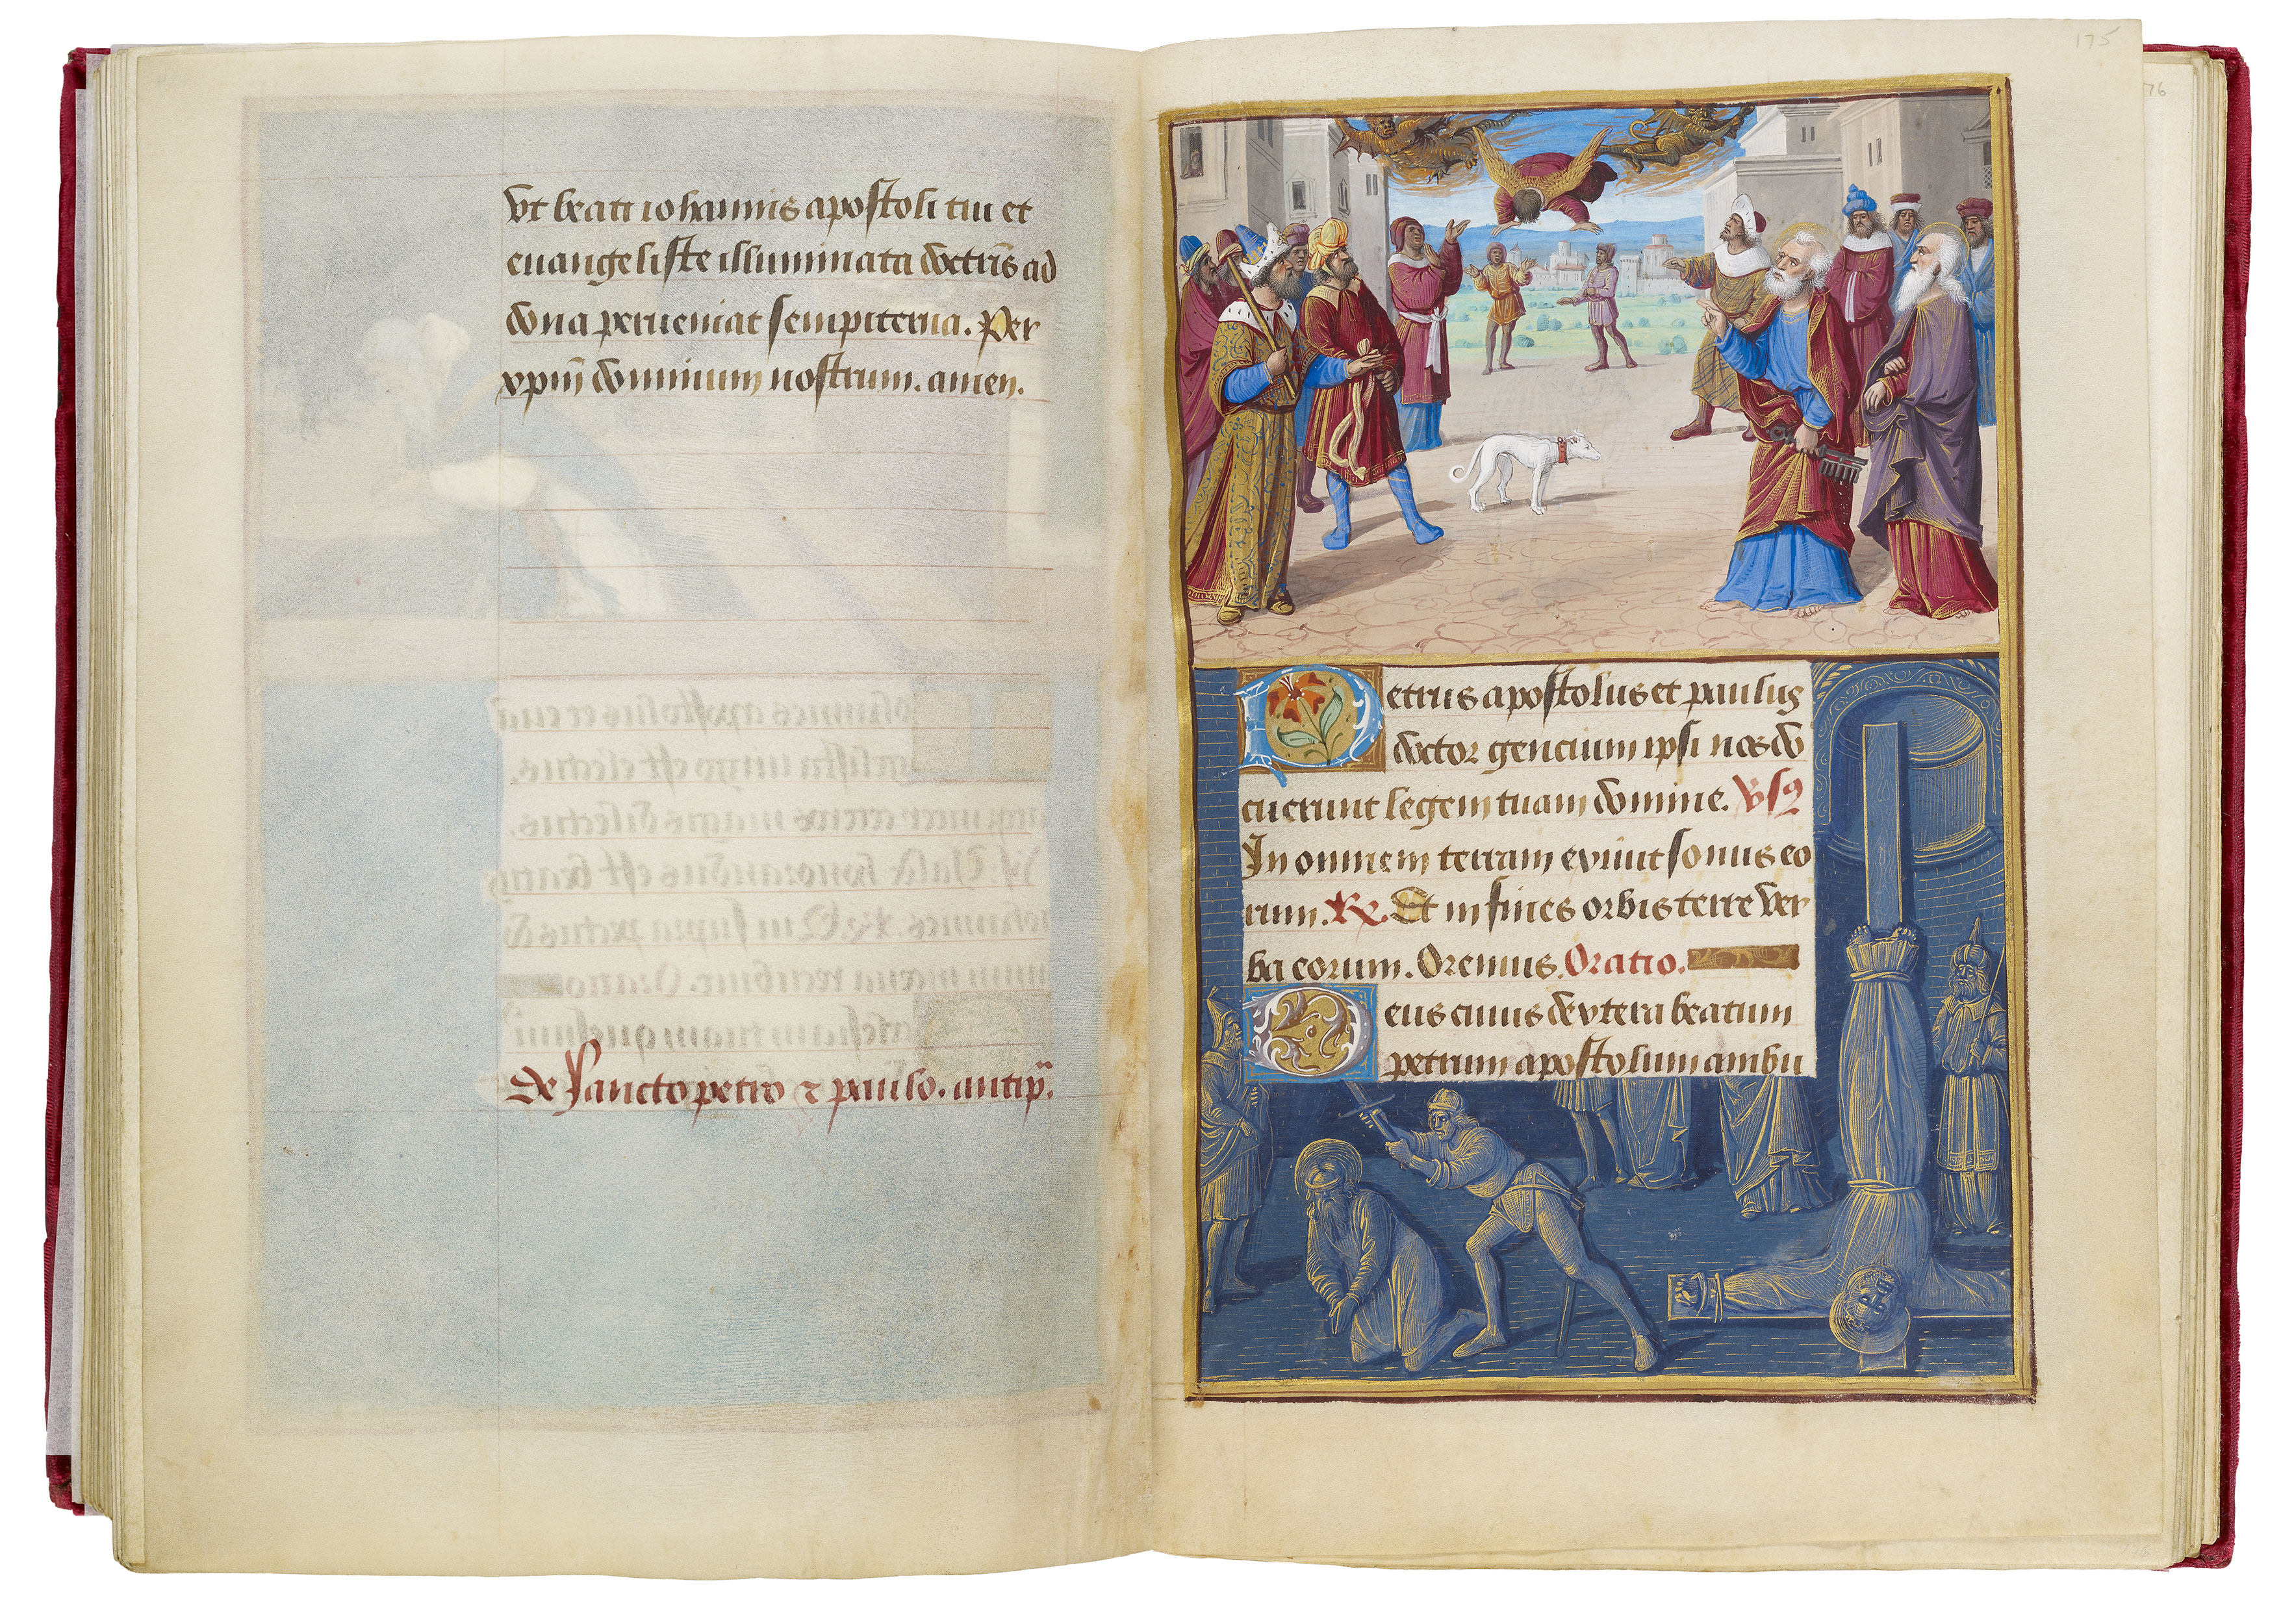 vt beati iohannis apostoli tui et
euangeliste illuminata doctrīs ad
dona perueniat sempiterna. Per
xpm̄ dominum nostrum. amen.
de sancto petro ⁊ paulo. antip̄.
175
76
Petrus apostolus et paulus
doctor gencium ipsi nos do
cuerunt legem tuam domine. V̄sꝯ
In omnem terram exiuit sonus eo
rum. ℟. Et in fines orbis terre ver
ba eorum. Oremus. Oratio.
Deus cuius dextera beatum
petrum apostolum ambu